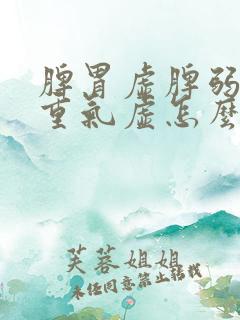 脾胃虚脾弱
重氣虚怎麽
芙蓉姐姐
未经同意禁止转载